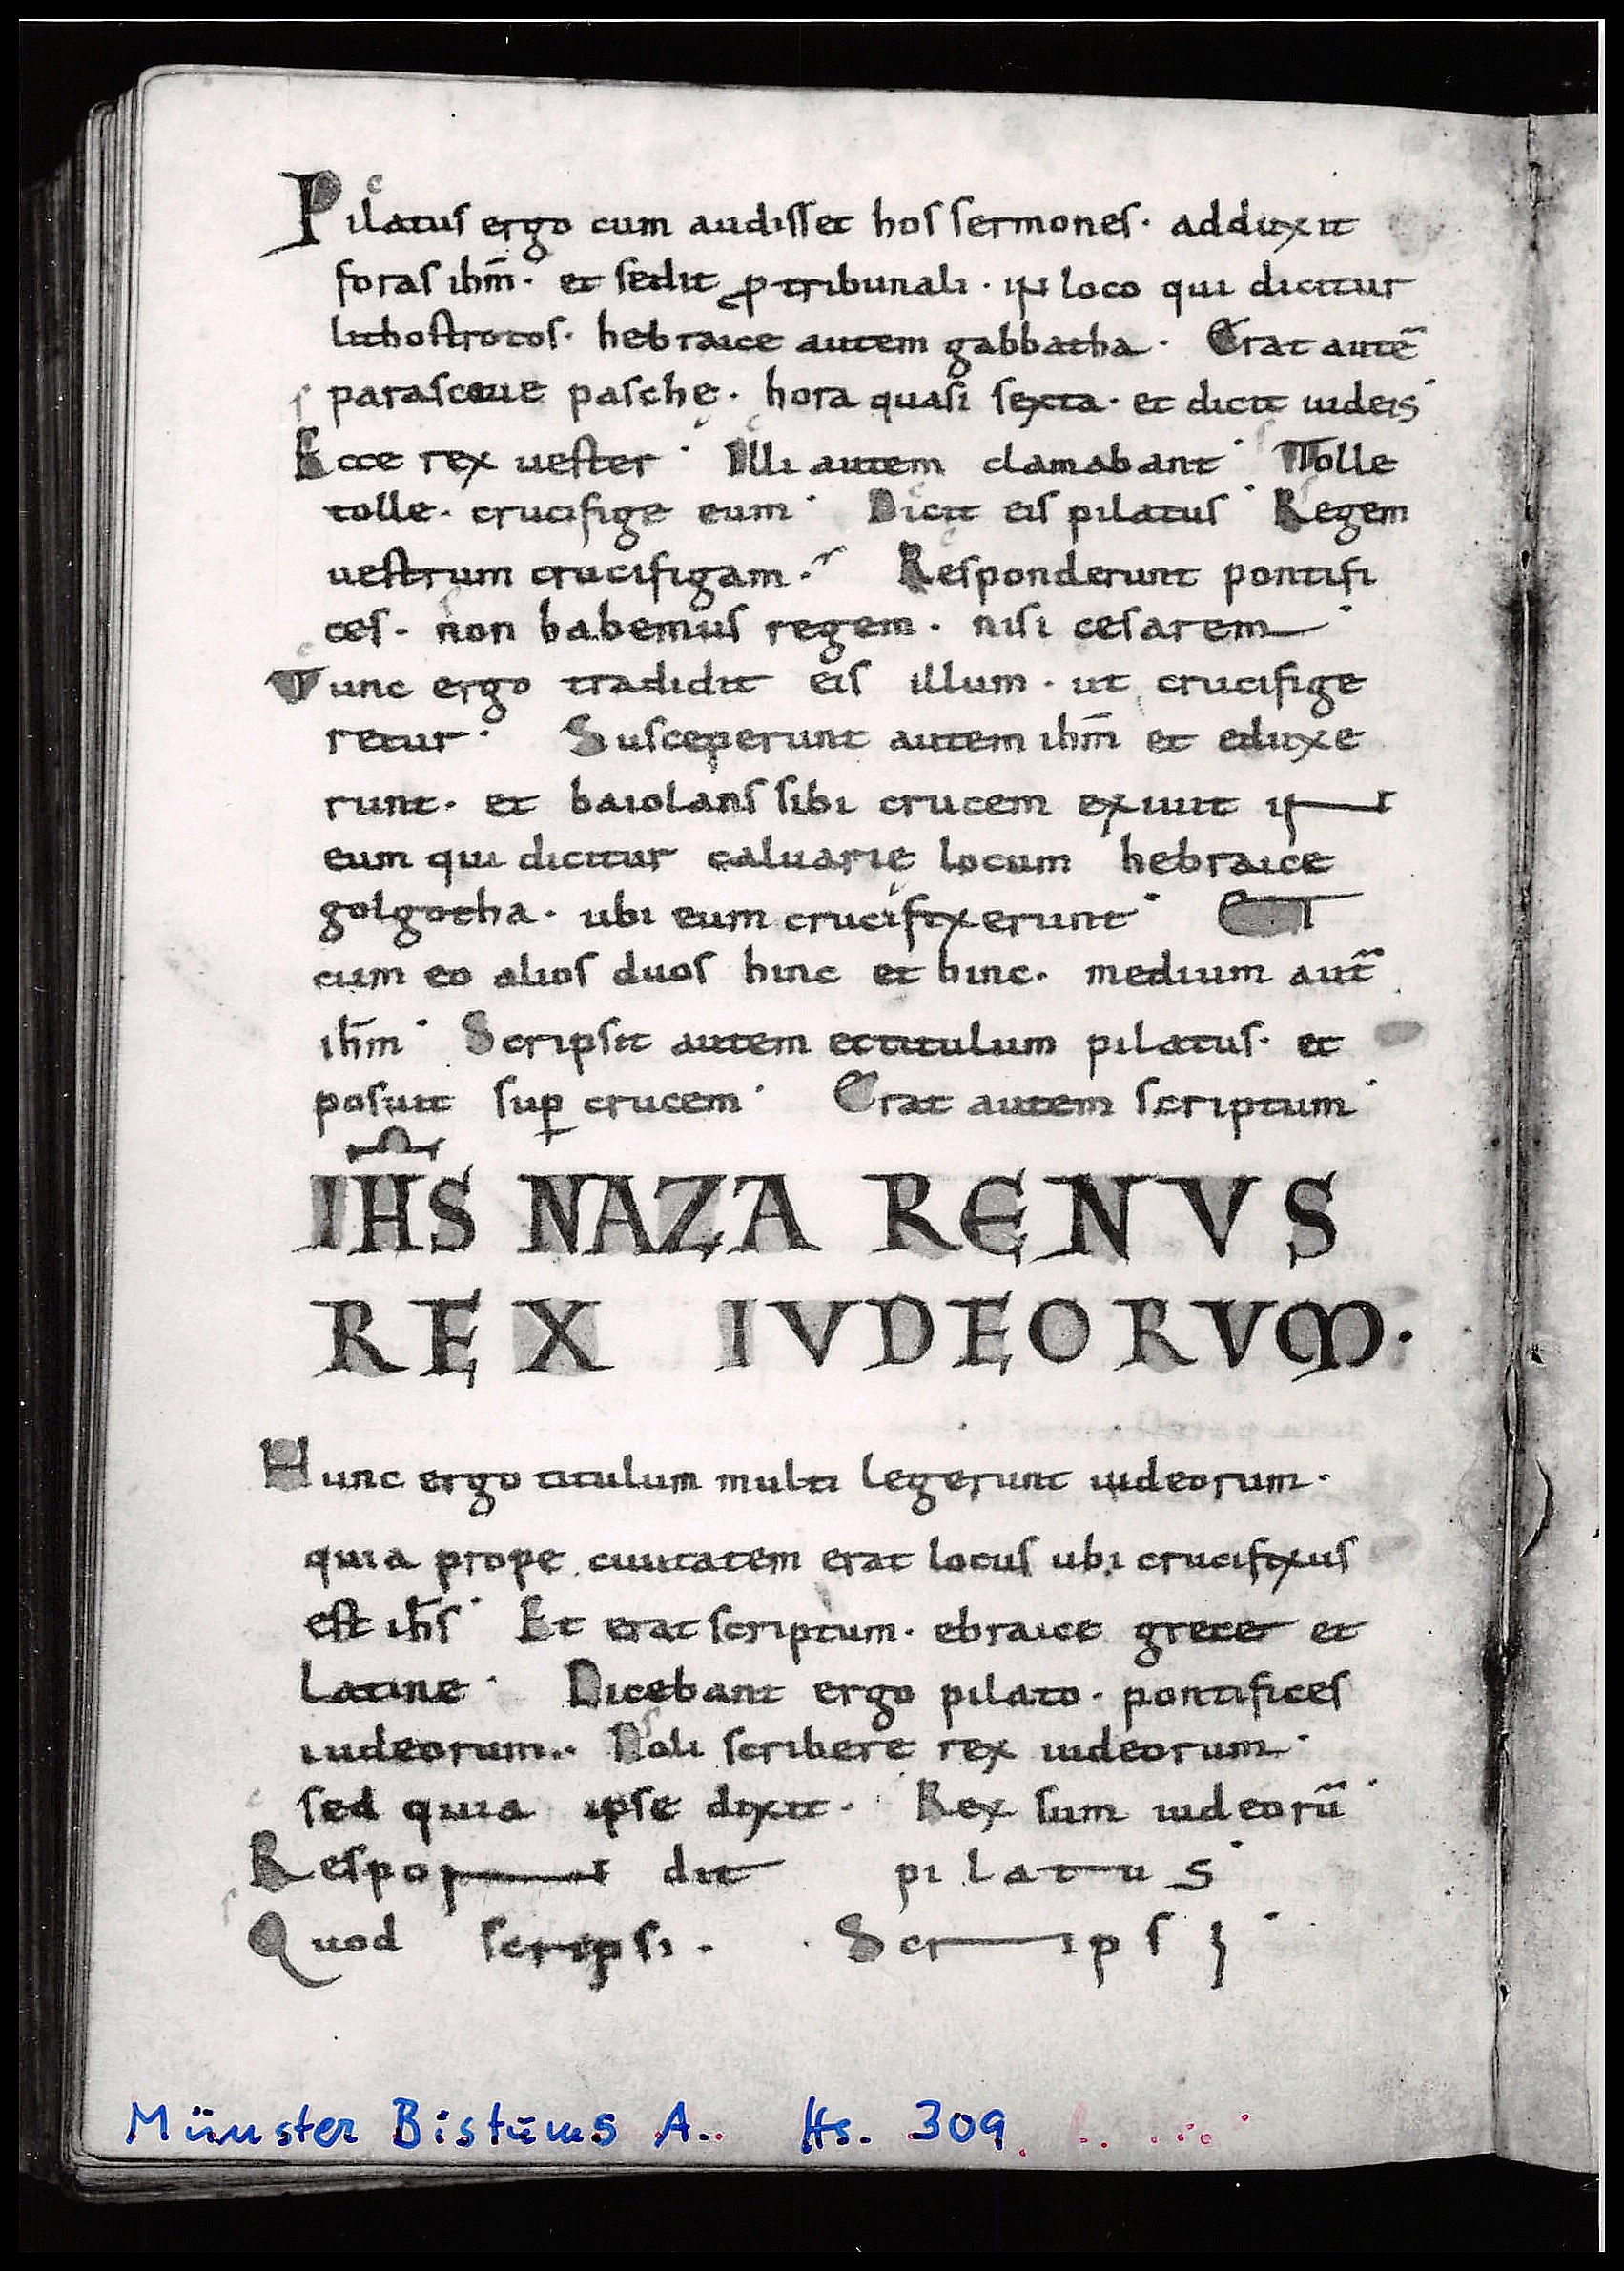 Pilatus ergo cum audisset hos sermones· adduxit
foras ihm̅· et sedit ꝓ tribunali· in loco qui dicitur
lithostrotos· hebraice autem gabbatha· Erat aute̅
parasceue pasche· hora quasi sexta· et dicit iudeis·
Ecce rex uester· Illi autem clamabant· Tolle
tolle· crucifige eum· Dicit eis pilatus· Regem
uestrum crucifigam·~ Responderunt pontifi
ces· non habemus regem· nisi cesarem·
Tunc ergo tradidit eis illum· ut crucifige
retur· Susceperunt autem ihm̅ et eduxe
runt· et baiolans sibi crucem exiuit in
eum qui dicitur caluarię locum hebraice
golgotha· ubi eum crucifixerunt· ET
cum eo alios duos hinc et hinc· medium aut̅
ihm̅· Scripsit autem et titulum pilatus· et
posuit sup̲ crucem· Erat autem scriptum·
IH̅S NAZA RENVS
REX IVDEORVM·
Hunc ergo titulum multi legerunt iudeorum·
quia prope ciuitatem erat locus ubi crucifixus
est ih̅s· Et erat scriptum· ebraice grece et
Latine· Dicebant ergo pilato· pontifices
iudeorum·· Noli scribere rex iudeorum·
sed quia ipse dixit· Rex sum iudeoru̅·
Respon dit pilatus·
Quod scripsi· Scripsi·
Münster Bistums A. Hs. 309